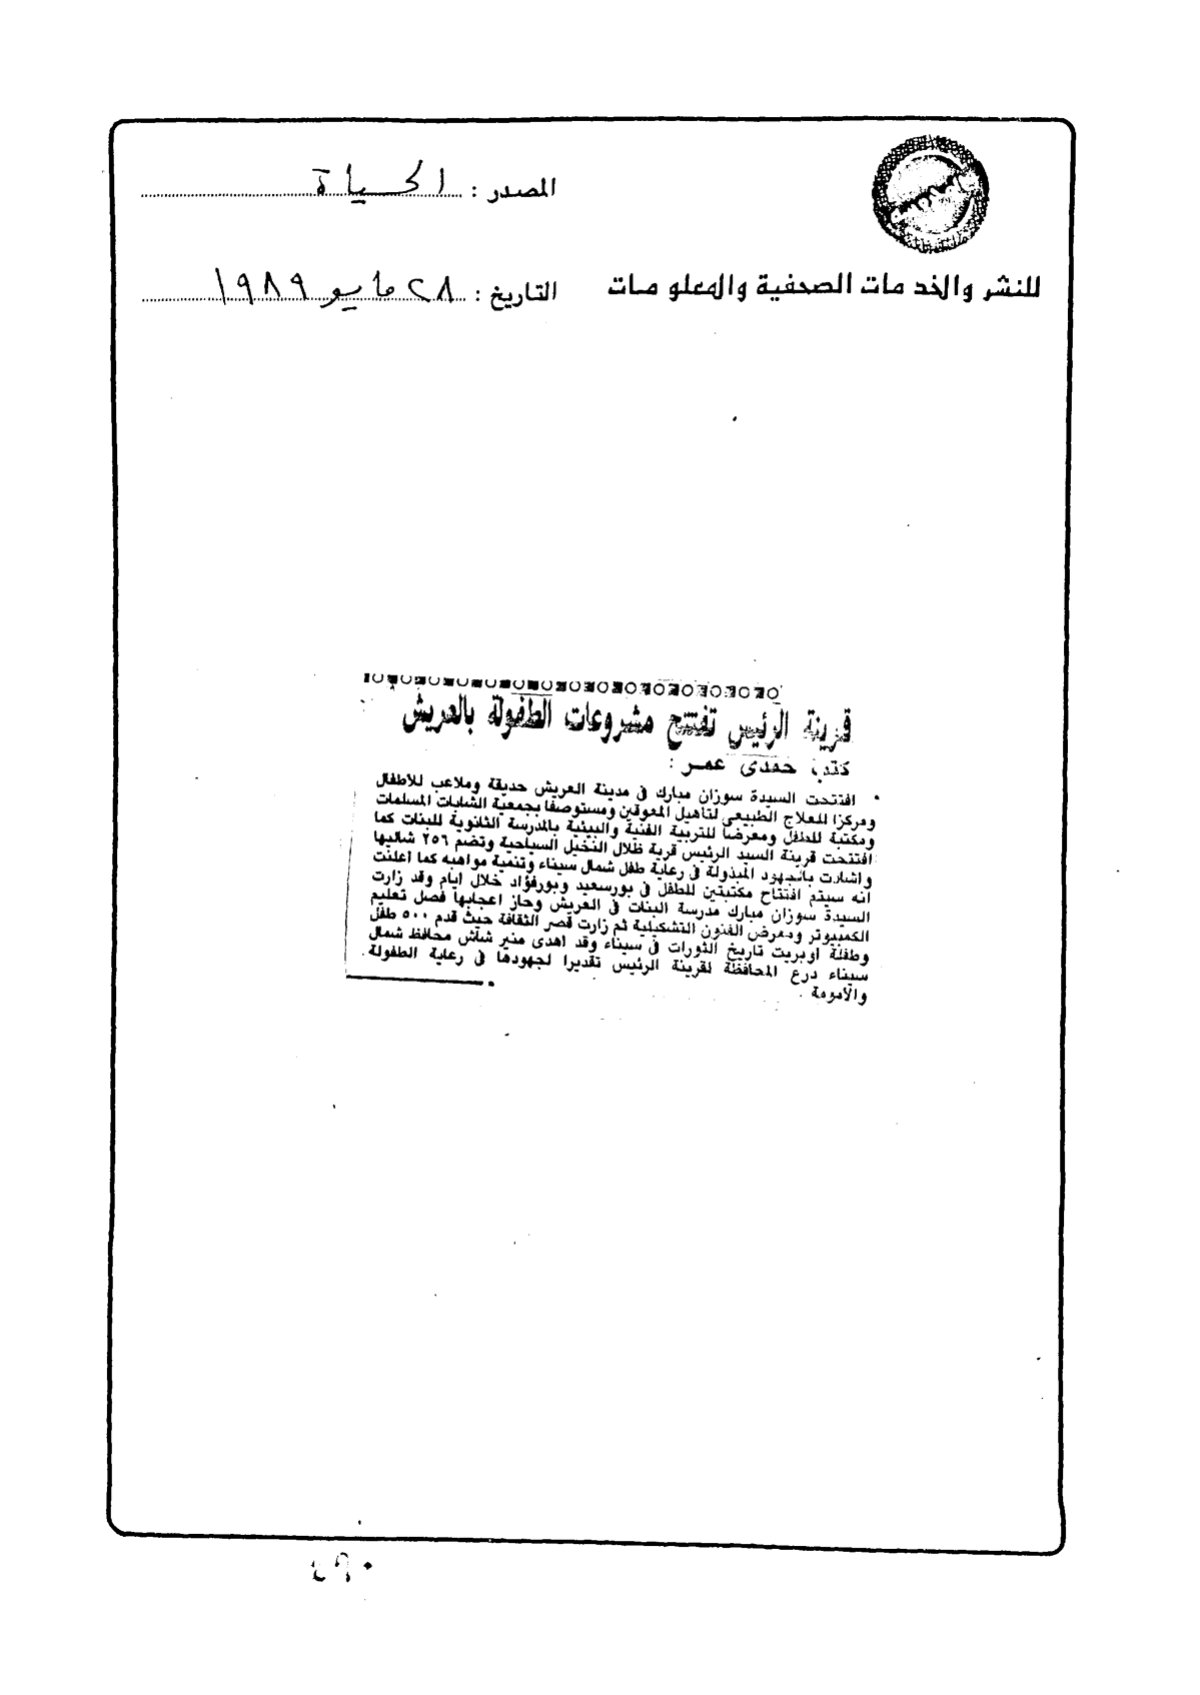 المصدر : الحياة
للنشر والخدمات الصحفية والمعلومات
التاريخ : ٢٨ مايو ١٩٨٩
قرينة الرئيس تفتتح مشروعات الطفولة بالعريش
كتب حمدى عمر :
افتتحت السيدة سوزان مبارك فى مدينة العريش حديقة وملاعب للأطفال
ومركزا للعلاج الطبيعى لتأهيل المعوقين ومستوصفا بجمعية الشابات المسلمات
ومكتبة للطفل ومعرضا للتربية الفنية والبيئية بالمدرسة الثانوية للبنات كما
افتتحت قرينة السيد الرئيس قرية ظلال النخيل السياحية وتضم ٢٥٦ شاليها
واشادت بالجهود المبذولة فى رعاية طفل شمال سيناء وتنمية مواهبه كما اعلنت
انه سيتم افتتاح مكتبتين للطفل فى بورسعيد وبورفؤاد خلال ايام وقد زارت
السيدة سوزان مبارك مدرسة البنات فى العريش وحاز اعجابها فصل تعليم
الكمبيوتر ومعرض الفنون التشكيلية ثم زارت قصر الثقافة حيث قدم ٥٠٠ طفل
وطفلة اوبريت تاريخ الثورات فى سيناء وقد اهدى منير شاش محافظ شمال
سيناء درع المحافظة لقرينة الرئيس تقديرا لجهودها فى رعاية الطفولة
والأمومة .